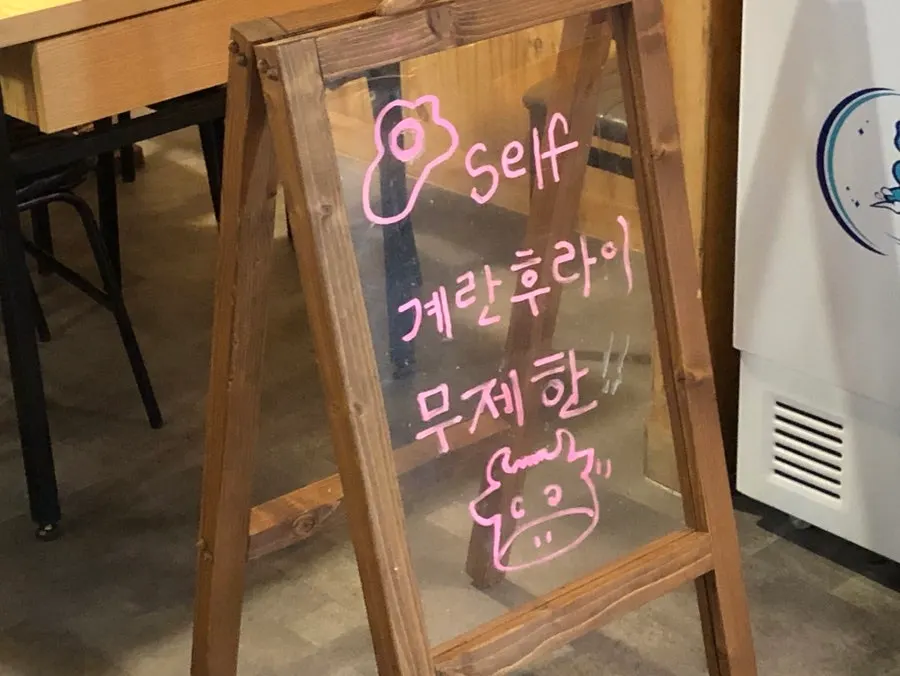 self
계란후라이
무제한!!